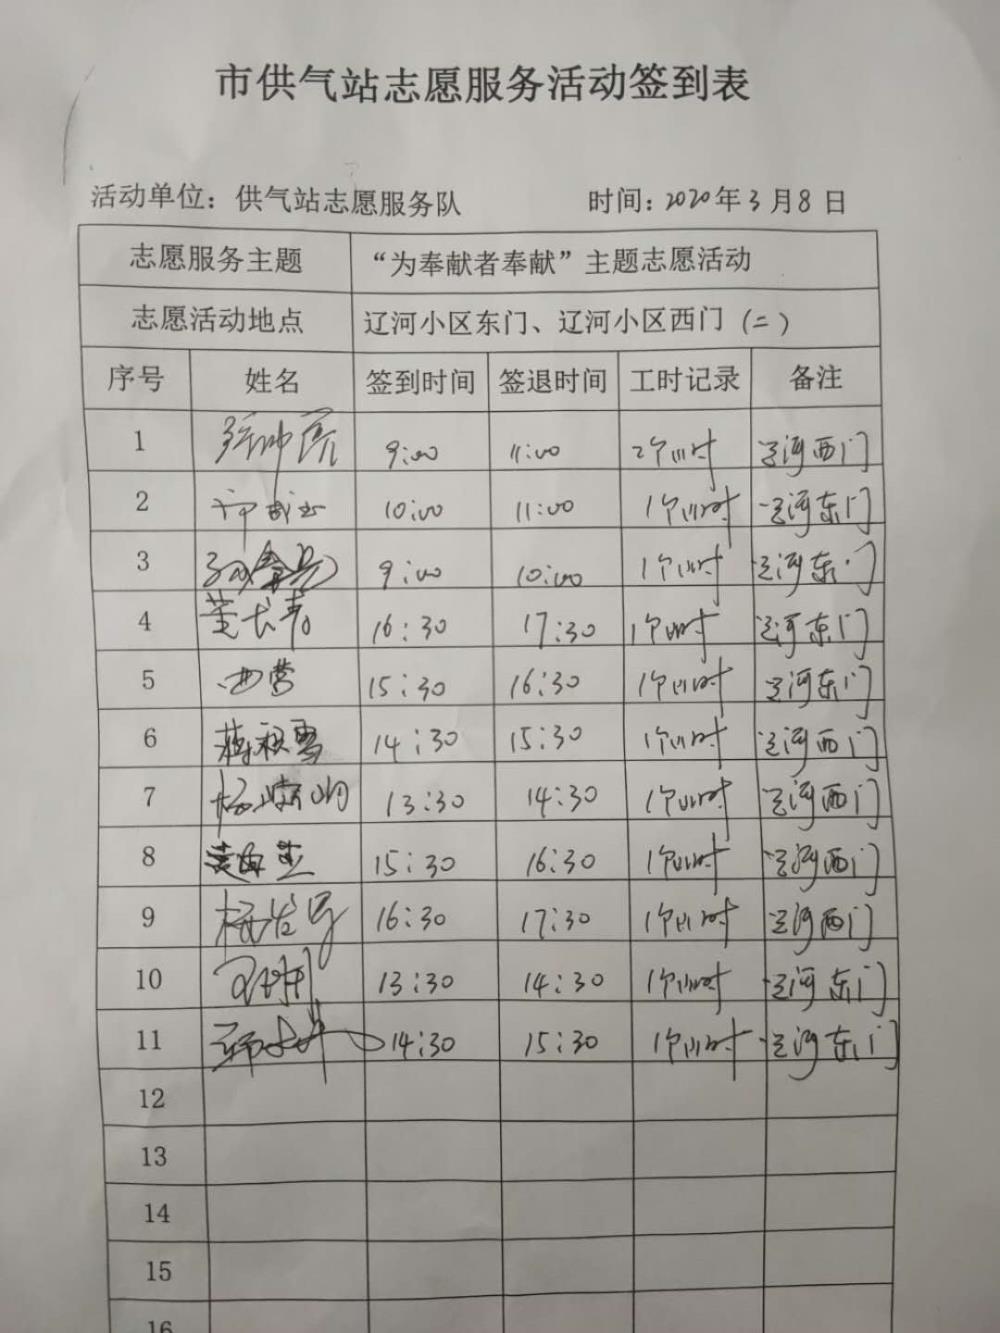 市供气站志愿服务活动签到表
活动单位：供气站志愿服务队 时间：2020年3月8日
志愿服务主题 “为奉献者奉献”主题志愿活动
志愿活动地点 辽河小区东门、辽河小区西门(二)
序号 姓名 签到时间 签退时间 工时记录 备注
1 9:00 11:00 2个小时 辽河西门
2 10:00 11:00 1个小时 辽河东门
3 9:00 10:00 1个小时 辽河东门
4 董长青 16:30 17:30 1个小时 辽河东门
5 15:30 16:30 1个小时 辽河东门
6 14:30 15:30 1个小时 辽河西门
7 13:30 14:30 1个小时 辽河西门
8 15:30 16:30 1个小时 辽河西门
9 16:30 17:30 1个小时 辽河西门
10 13:30 14:30 1个小时 辽河东门
11 14:30 15:30 1个小时 辽河东门
12
13
14
15
16